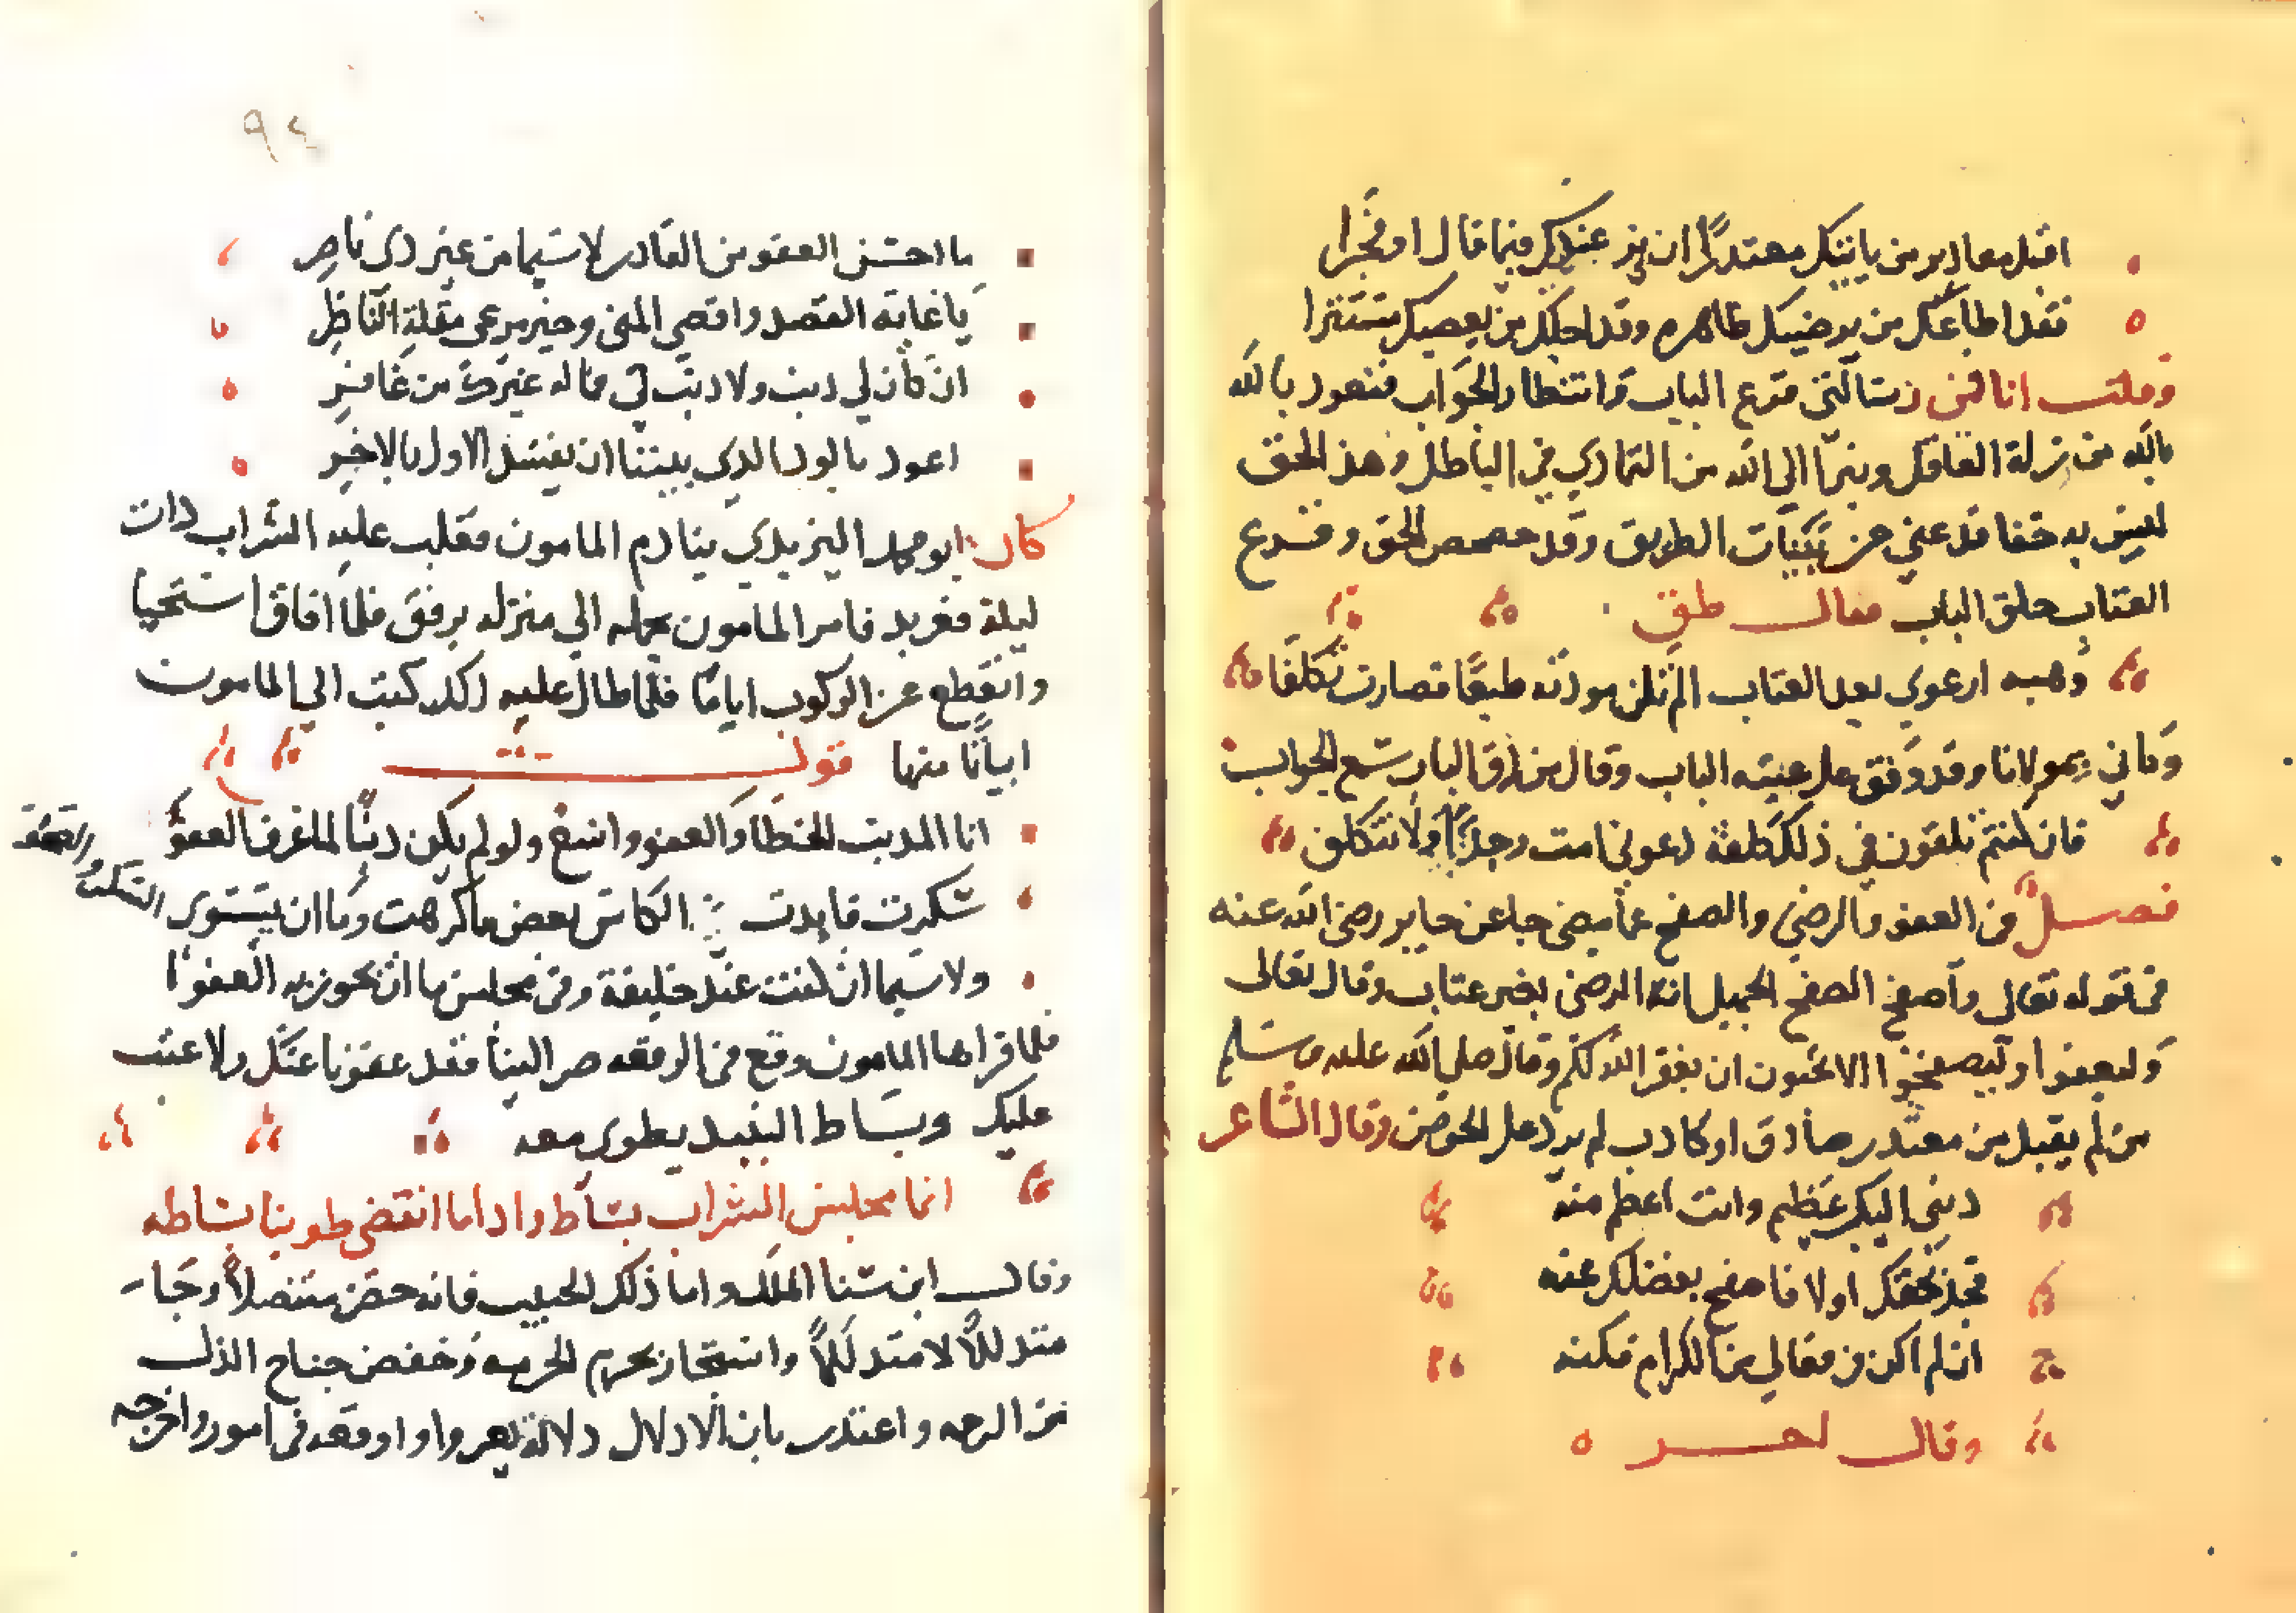 اقبل معاذير من ياتيك معتذرًا ان بر عندك فيما قال او فجرا
فقد اطاعك من يرضيك ظاهره وقد اجلك من يعصيك مستترا
وقلت انا في رسالتي قرع الباب وانتظار الجواب فنعوذ بالله
بالله من زلة العاقل ونبرا الي الله من التمادي في الباطل وهذا الحق
ليس به خفا فدعني من بنيات الطريق وقد حصحص الحق وقرع
العتاب حلق الباب فقال طق
وهبه ارعوي بعد العتاب الم تكن مودته طبعًا فصارت تكلفا
وكاني بمولانا وقد وقف علي عتبة الباب وقال من دق الباب سمع الجواب
فان كنتم تلقون في ذلك كلفة دعوني امت وجدًا ولا تتكلفو
فصل في العفو والرضي والصفح عما مضي جا عن جابر رضي الله عنه
في قوله تعالي واصفح الصفح الجميل انه الرضي بغير عتاب وقال تعالي
وليعفوا وليصفحوا الا تحبون ان يغفر الله لكم وقال صلي الله عليه وسلم
من لم يقبل من معتذر صادق او كاذب لم يرد علي الحوض وقال الشاعر
ذنبي اليك عظيم وانت اعظم منه
فخذ بحقك او لا فاصفح بفضلك عنه
ان لم اكن في فعالي من الكرام فكنه
وقال اخر
٩٤
ما احسن العفو من القادر لا سيما من غير ذي ناصر
يا غاية القصد واقصي المني وخير مرعي مقلة الناظر
ان كان لي ذنب ولا ذنب لي فما له غيرك من غافر
اعوذ بالود الذي بيننا ان يفسد الاول بالاخر
كان ابو محمد اليزيدي ينادم المامون فغلب عليه الشراب ذات
ليلة فعربد فامر المامون بحمله الي منزله برفق فلما افاق استحيا
وانقطع عن الركوب ايامًا فلما طال عليه ذلك كتب الي المامون
ابياتًا منها قوله
انا المذنب الخطا والعفو واسع ولو لم يكن ذنبًا لما عرف العفو
سكرت فابدت الكاس بعض ما كرهت وما ان يستوي السكر والصحو
ولا سيما ان كنت عند خليفة وفي مجلس ما ان يجوز به العفو
فلما قراها المامون وقع في الرقعه صر الينا فقد عفونا عنك ولا عتب
عليك وبساط النبيذ يطوي معه
انما مجلس الشراب بساط واذا ما انقضي طوينا بساطه
وقال ابن سنا الملك واما ذلك الحبيب فانه حضر متنصلًا وجا
متذللًا لا متدللًا واستجار بحرم الحرمه وخفض جناح الذل
من الرحمه واعتذر بان الادلال دلاله واوقعه في امور واخرجه